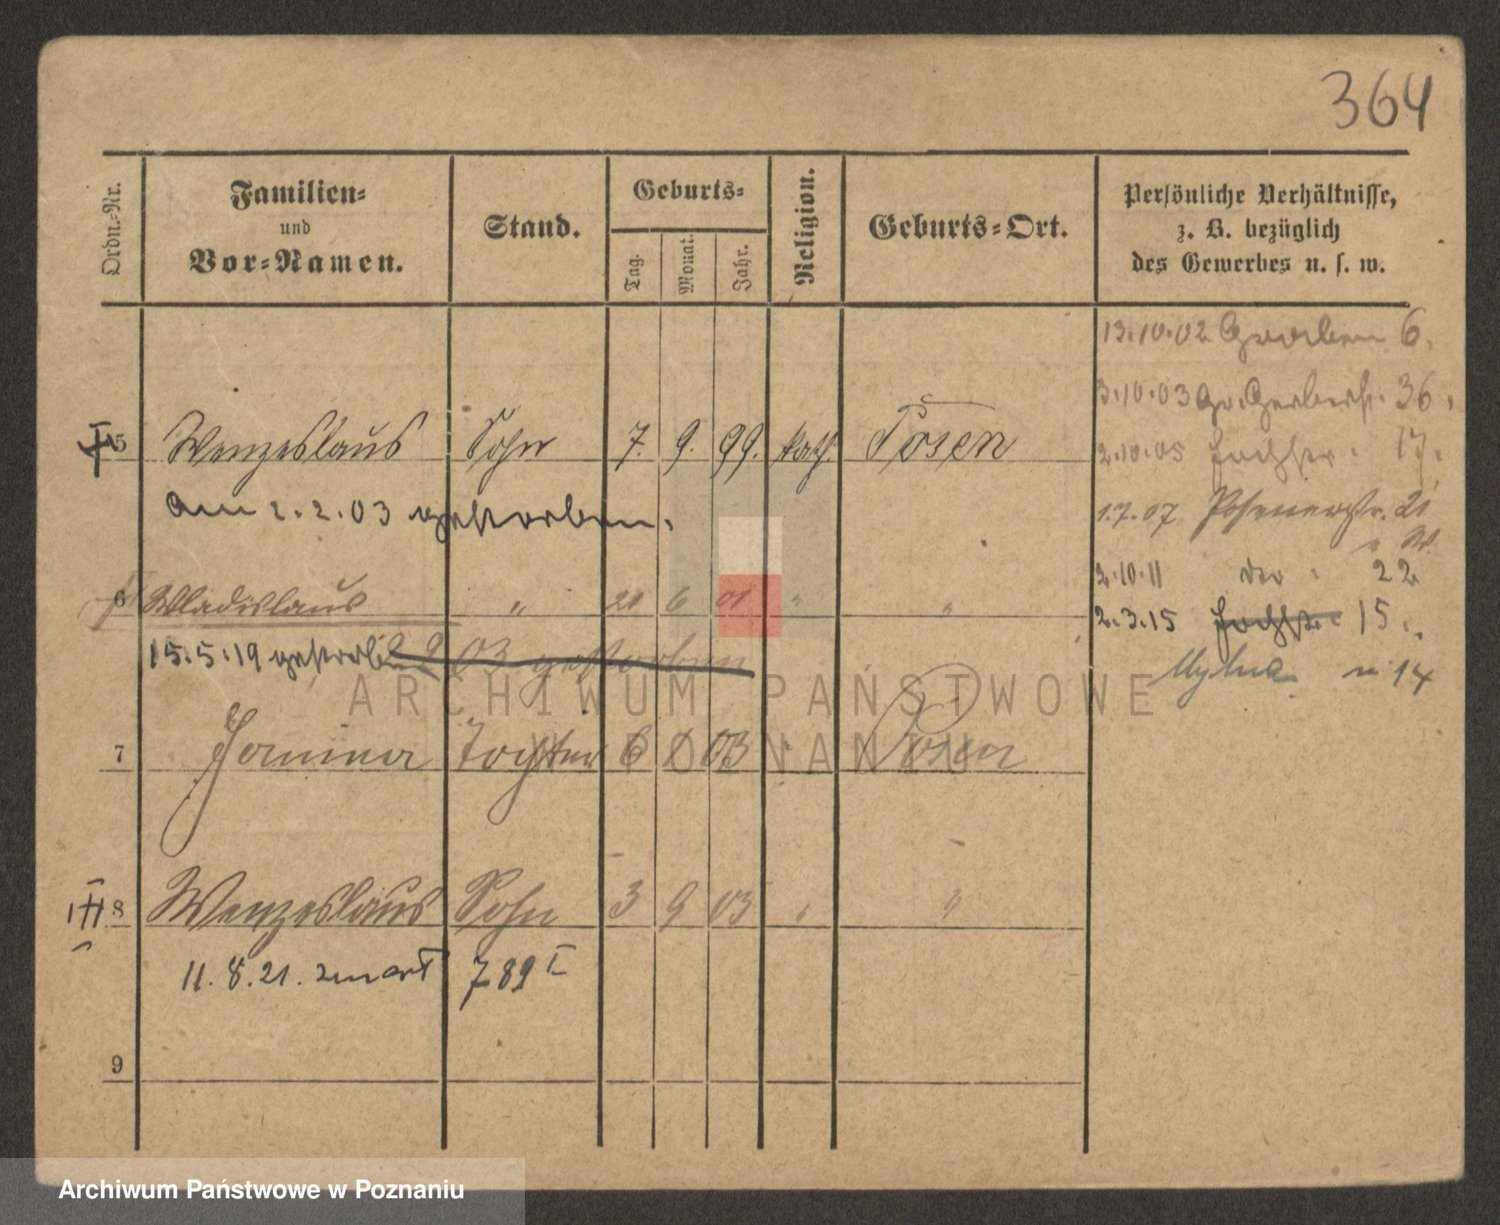 364
Ordn.-Nr.
Familien-
und
Vor-Namen.
Stand.
Geburts-
Tag.
Monat.
Jahr.
Religion.
Geburts-Ort.
Persönliche Verhältnisse,
z. B. bezüglich
des Gewerbes u. s. w.
13.10.02 Graben 6.
3.10.03 Gr. Gerberstr. 36.
5 Wenzeslaus Sohn 7. 9. 99. kath. Posen
2.10.05 17.
am 2.2.03 gestorben.
1.7.07 Posenerstr. 21
2.10.11 22
6 Wladislaus " 21 6 01 " "
2.3.15 15.
15.5.19 gestorben 03 gestorben
14
7 Janina Tochter 6 1 03 " Posen
8 Wenzeslaus Sohn 3 9 03 " "
11.8.21. 789 I
9
ARCHIWUM PAŃSTWOWE
W POZNANIU
Archiwum Państwowe w Poznaniu